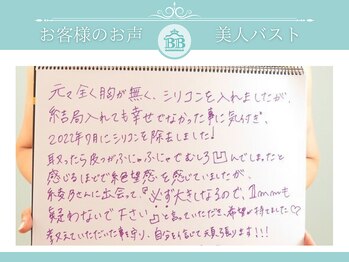 お客様のお声
BB
美人バスト
元々全く胸が無く、シリコンを入れましたが、
結局入れても幸せでなかった事に気付き。
2022年7月にシリコンを除去しました!
取ったら皮がぶにゃぶにゃでむしろ凹んでしまったと
感じるほどで絶望感を感じていましたが、
綾乃さんに出会って、「必ず大きくなるので、1mmも
疑わないで下さい」と言っていただき、希望が持てました♡
教えていただいた事を守り、自分を信じて頑張ります!!!